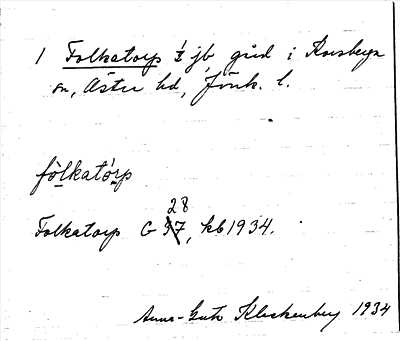 1 Folkatorp ½ jb gård i Korsberga
sn, Östra hd, Jönk. l.
fòlkatór̲p
28
Folkatorp G 37, kb 1934.
Anna-Greta Klackenberg 1934